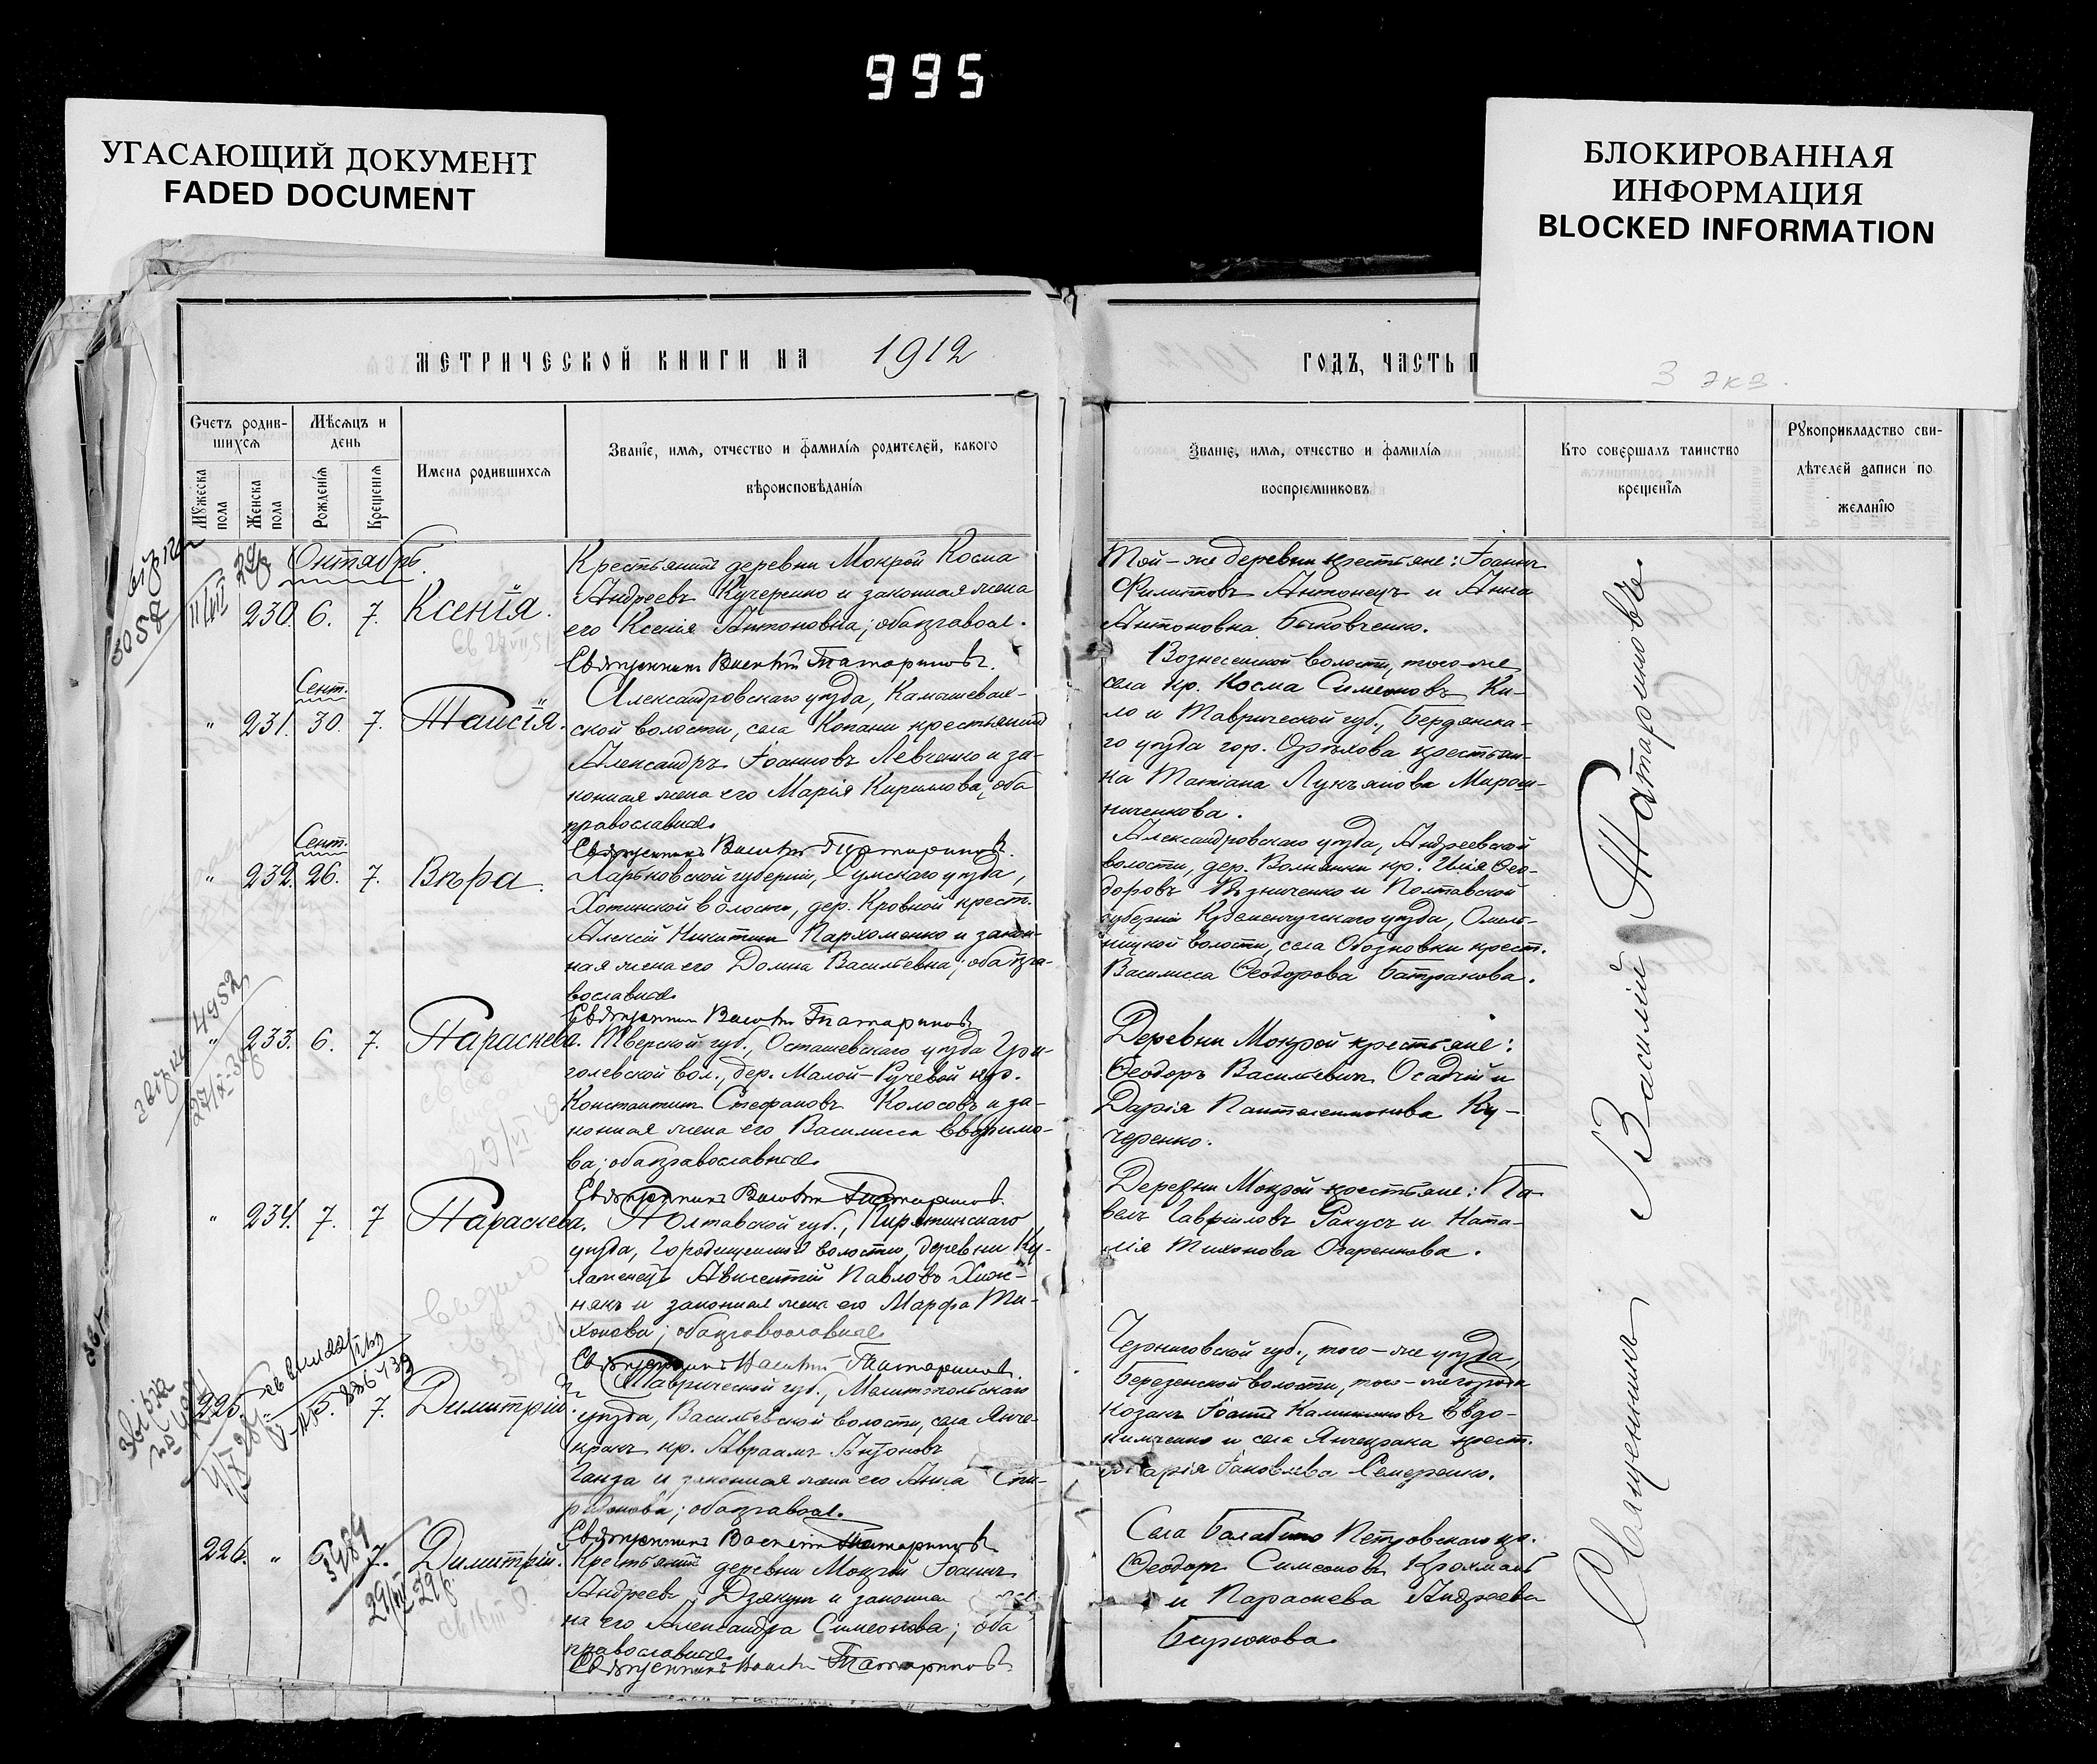 995
УГАСАЮЩИЙ ДОКУМЕНТ
FADED DOCUMENT
БЛОКИРОВАННАЯ
ИНФОРМАЦИЯ
BLOCKED INFORMATION
3 экз.
МЕТРИЧЕСКОЙ КНИГИ НА 1912
ГОДЪ, ЧАСТЬ П
Счетъ родив-
шихся
Мужеска пола
Женска пола
Мѣсяцъ и
день
Рожденія
Крещенія
Имена родившихся
Званіе, имя, отчество и фамилія родителей, какого
вѣроисповѣданія
Званіе, имя, отчество и фамилія
воспріемниковъ
Кто совершалъ таинство
крещенія
Рукоприкладство сви-
дѣтелей записи по
желанію
Октябрь.
230. 6. 7. Ксенія.
Крестьянинъ деревни Мокрой Косма
Андреевъ Кучеренко и законная жена
его Ксенія Антоновна; оба правосл.
Священникъ Василій Татариновъ.
Той-же деревни крестьяне: Іоаннъ
Филипповъ Антонецъ и Анна
Антоновна Быковченко.
Сент.
" 231. 30. 7. Таисія.
Александровскаго уѣзда, Камышевах-
ской волости, села Копани крестьянинъ
Александръ Іоанновъ Левченко и за-
конная жена его Марія Кириллова, оба
православные.
Священникъ Василій Татариновъ.
Вознесенской волости, того-же
села кр. Косма Симеоновъ Ки-
ло и Таврической губ., Бердянска-
го уѣзда гор. Орѣхова крестьян-
ка Татіана Лукьянова Мирош-
ниченкова.
Сент.
" 232. 26. 7. Вѣра.
Харьковской губерніи, Сумскаго уѣзда,
Хотинской волости, дер. Кровной крест.
Алексій Никитинъ Пархоменко и закон-
ная жена его Домна Васильевна; оба пра-
вославные.
Священникъ Василій Татариновъ.
Александровскаго уѣзда, Андреевской
волости, дер. кр. Илія Ѳео-
доровъ и Полтавской
губерніи Кременчугскаго уѣзда, Омель-
ницкой волости, села крест.
Василисса Ѳеодорова Батракова.
" 233. 6. 7. Параскева.
Тверской губ., Осташевскаго уѣзда
вол., дер. Малой-Ручевой кр.
Константинъ Стефановъ Колосовъ и за-
конная жена его Василисса Ефримо-
ва; оба православные.
Священникъ Василій Татариновъ.
Деревни Мокрой крестьяне:
Ѳеодоръ Васильевичъ Осадчій и
Дарія Пантелеимонова Ку-
черенко.
" 234. 7. 7 Параскева.
Полтавской губ., Пирятинскаго
уѣзда, Городищенской волости, деревни Ку-
Авксентій Павловъ Хиж-
някъ и законная жена его Марфа Ти-
хонова; оба православные.
Священникъ Василій Татариновъ.
Деревни Мокрой крестьяне: Па-
велъ Гавріиловъ Ракусъ и Ната-
лія Тихонова Огаренкова.
225. 7. Димитрій.
Таврической губ., Мелитопольскаго
уѣзда, Васильевской волости, села Янче-
кракъ кр. Авраамъ Антоновъ
Ганза и законная жена его Анна Спи-
ридонова; оба правосл.
Священникъ Василій Татариновъ
Черниговской губ., того-же уѣзда,
Березенской волости, того-же города
козакъ Іоаннъ Евдо-
кименко и села Янчекрака крест.
Марія Іаковлева Семеренко.
226. " 7. Димитрій.
Крестьянинъ деревни Мокрой Іоаннъ
Андреевъ Дзякунъ и законная же-
на его Александра Симеонова; оба
православные.
Священникъ Василій Татариновъ
Села Балабино Петровскаго кр.
Ѳеодоръ Симеоновъ Крохмаль
и Параскева Андреева
Бирюкова.
Священникъ Василій Татариновъ.